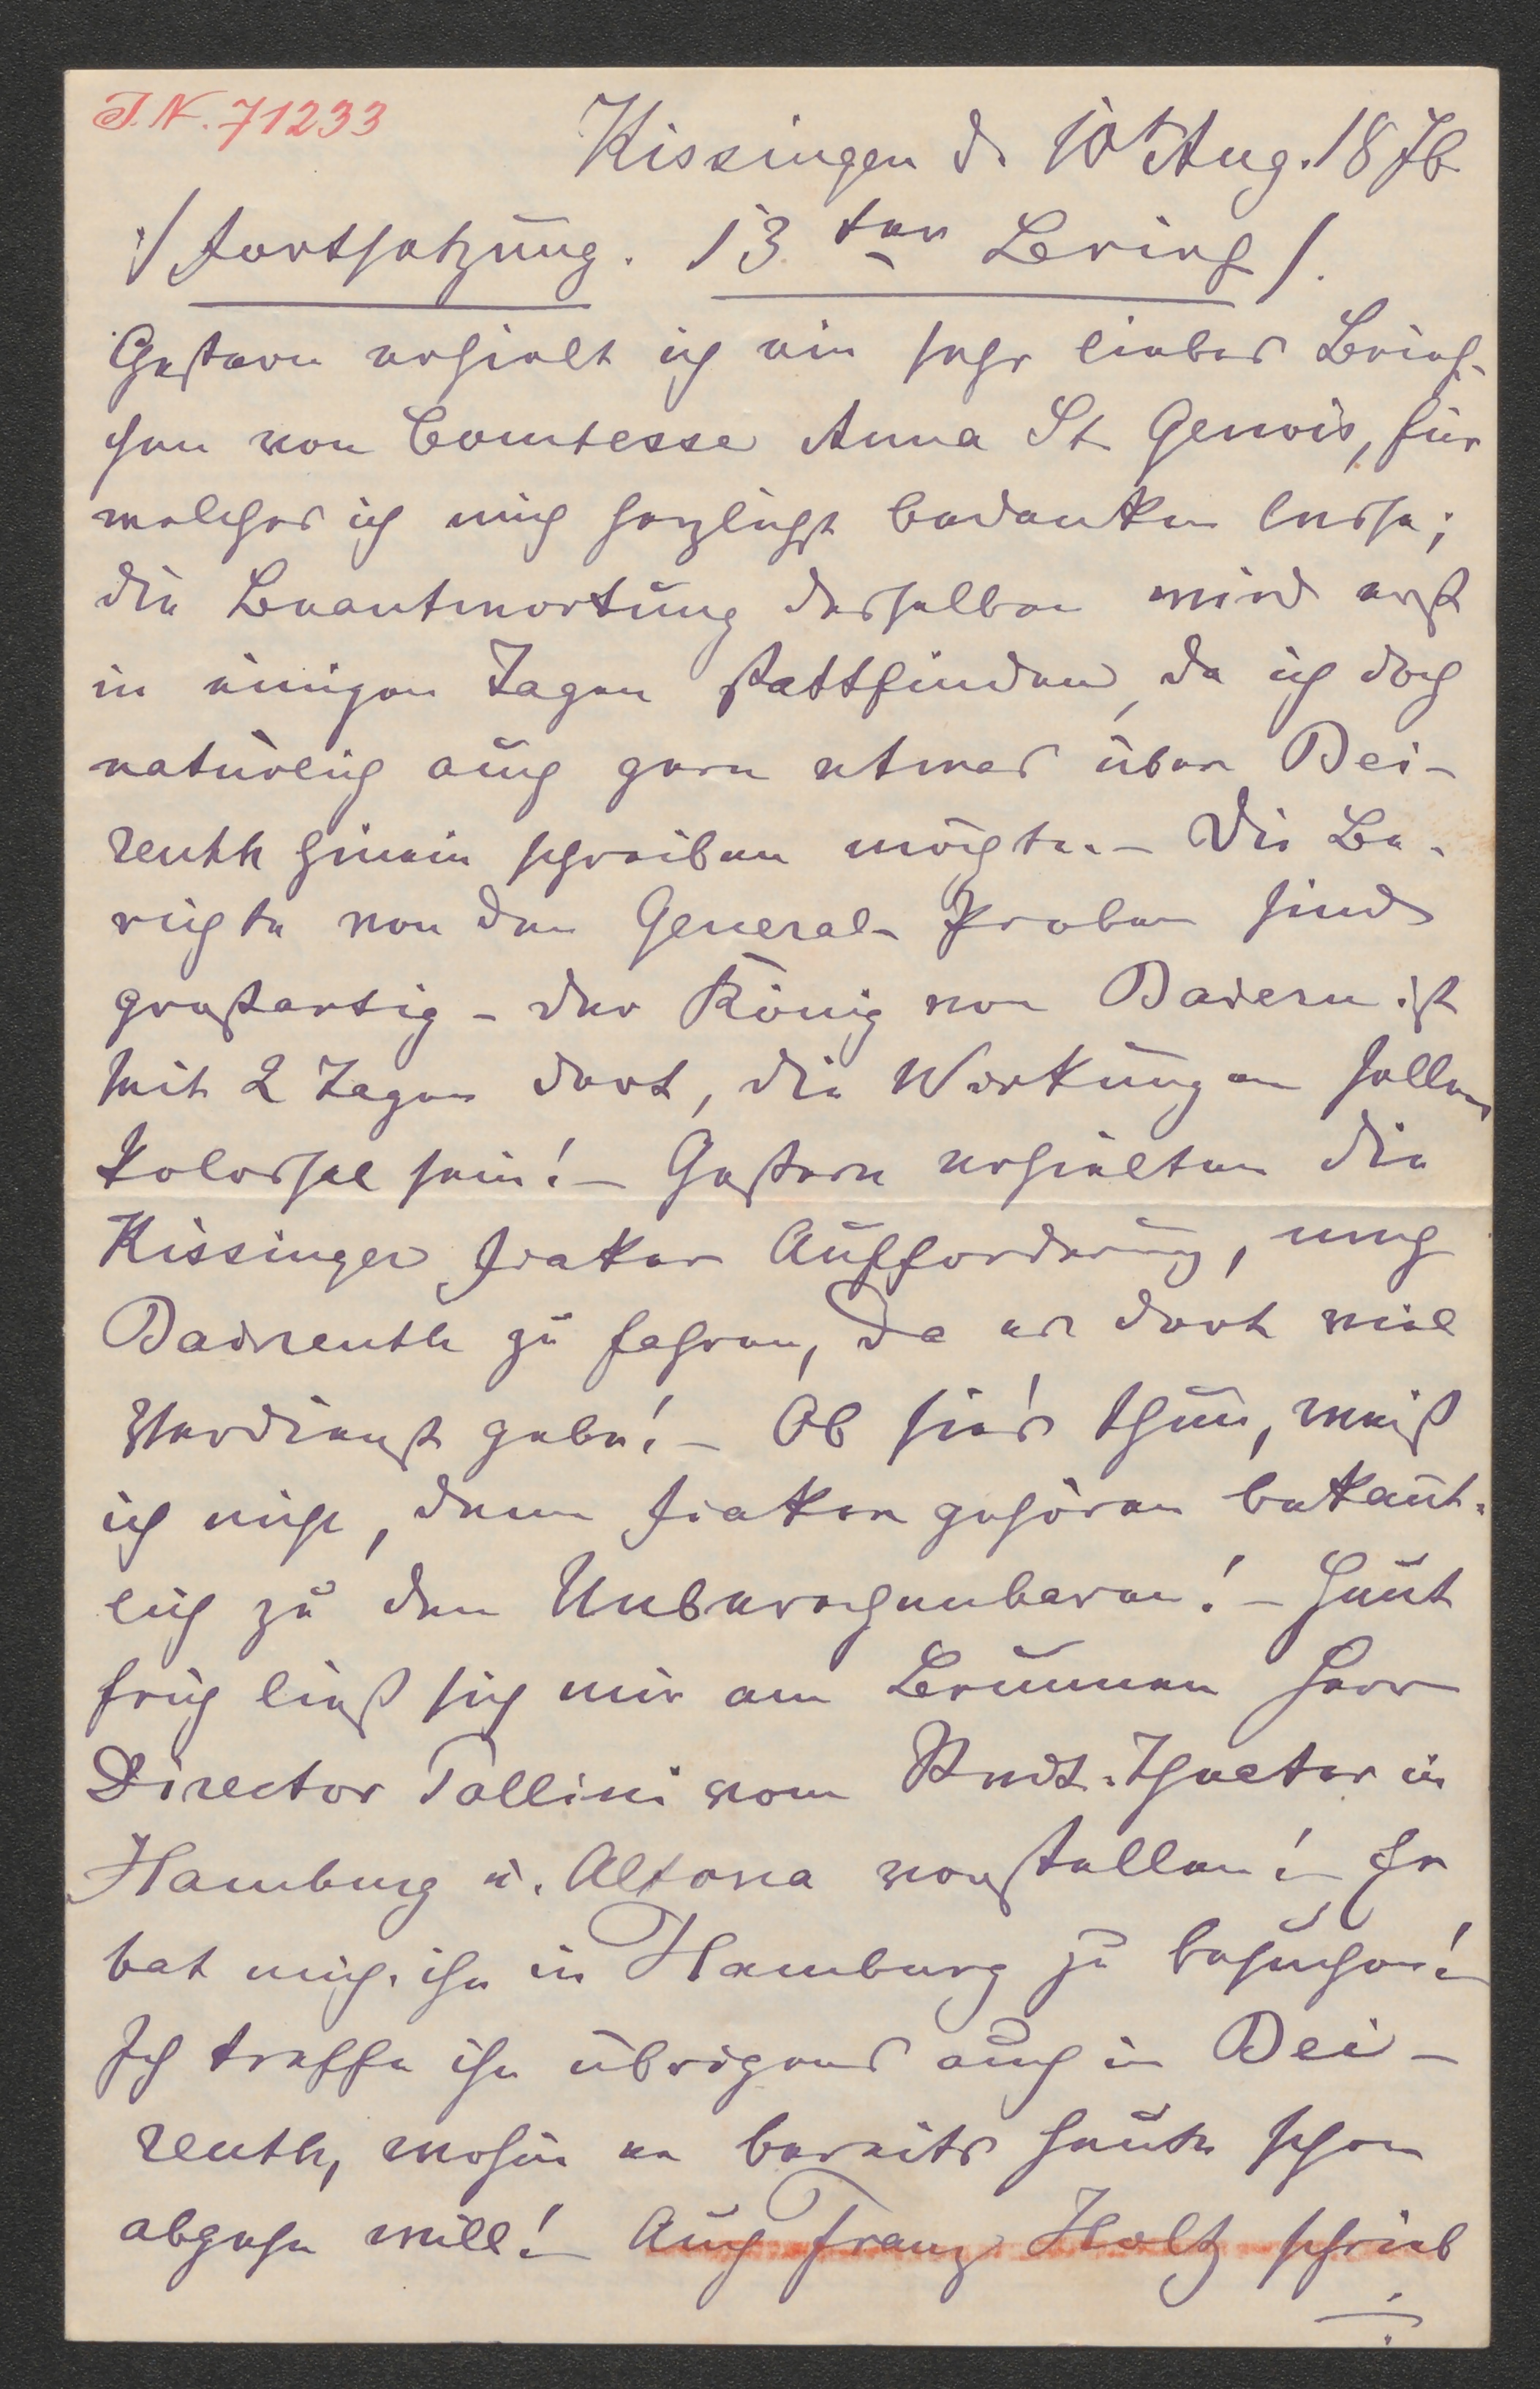 J.N. 71233
Kissingen d. 10t Aug. 1876
:/ Fortsetzung. 13ten Brief /.
Gestern erhielt ich ein sehr liebes Brief-
chen von Comtesse Anna St Genois, für
welches ich mich herzlichst bedanken lasse;
die Beantwortung desselben wird erst
in einigen Tagen stattfinden, da ich doch
natürlich auch gern etwas über Bei-
reuth hinein schreiben möchte. – Die Be-
richte von den General-Proben sind
großartig – der König von Baiern ist
seit 2 Tagen dort, die Wirkungen sollen
kolossal sein! – Gestern erhielten die
Kissinger Fiaker Aufforderung, nach
Baireuth zu fahren, da es dort viel
Verdienst gebe! – Ob sie's thun, weiß
ich nicht, denn Fiaker gehören bekannt-
lich zu den Unberechenbaren! – Heut
früh ließ sich mir am Brunnen Herr
Director Pollini vom Stadt-Theater in
Hamburg u. Altona vorstellen! – Er
bat mich, ihn in Hamburg zu besuchen! –
Ich treffe ihn übrigens auch in Bei-
reuth, wohin er bereits heute schon
abgehn will! – Auch Franz Holtz schrieb
÷